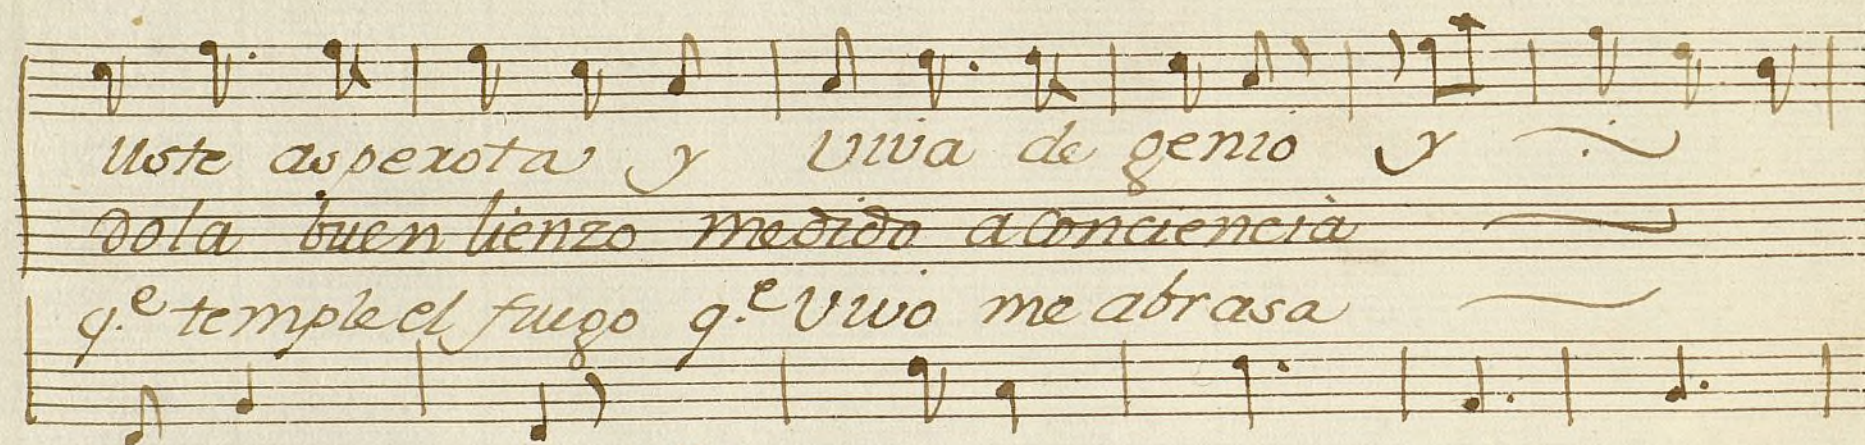 Uste asperota y viva de genio y
dola buen lienzo medido a conciencia
q.e temple el fuego q.e vivo me abrasa